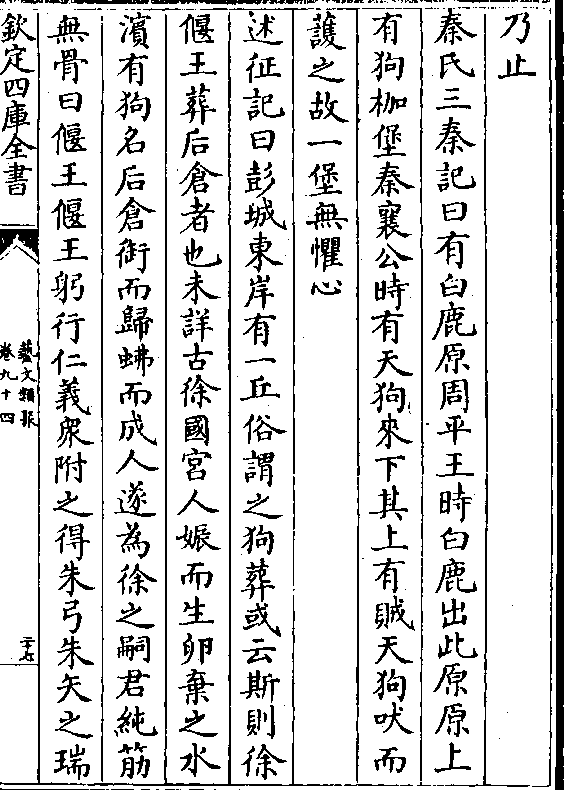 乃止
秦氏三秦記曰有白鹿原周平王時白鹿出此原原上
有狗枷堡秦襄公時有天狗來下其上有賊天狗吠而
護之故一堡無懼心
述征記曰彭城東岸有一丘俗謂之狗葬或云斯則徐
偃王葬后倉者也未詳古徐國宮人娠而生卵棄之水
濱有狗名后倉銜而歸蚌而成人遂為徐之嗣君純筋
無骨曰偃王偃王躬行仁義衆附之得朱弓朱矢之瑞
欽定四庫全書
藝文類聚
卷九十四
二十七